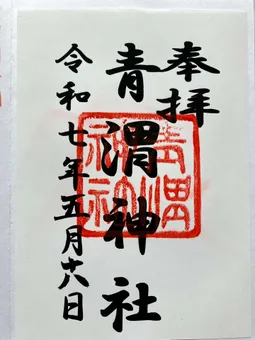 奉拝
青渭神社
令和七年五月十八日
青渭神社